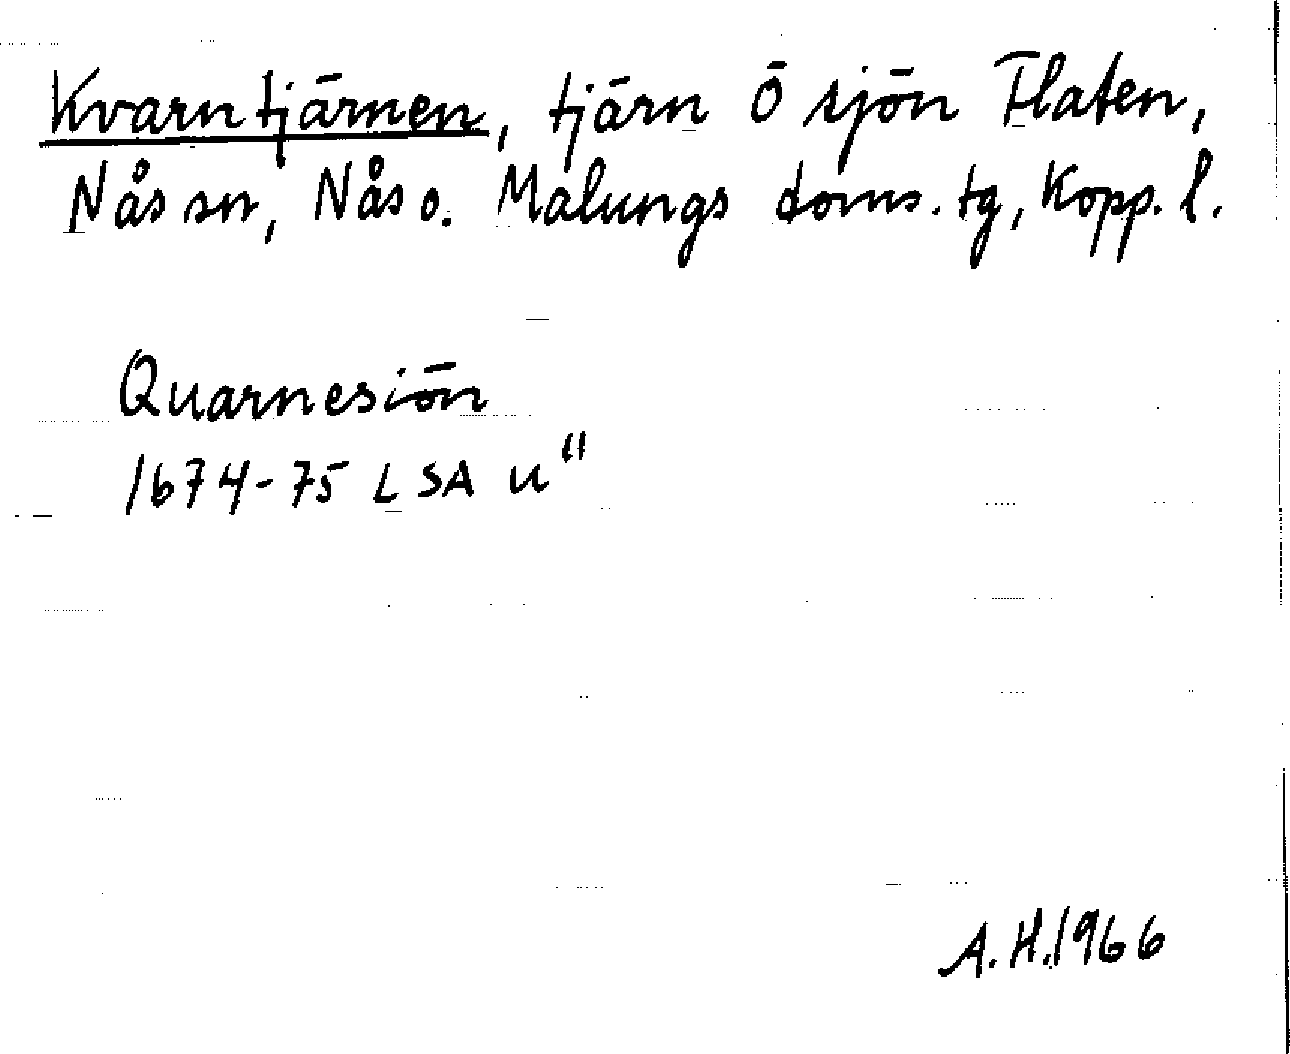 Kvarntjärnen, tjärn Ö sjön Flaten,
Nås sn, Nås o. Malungs doms. tg, Kopp. l.
Quarnesiön
1674-75 LSA u"
A.H. 1966